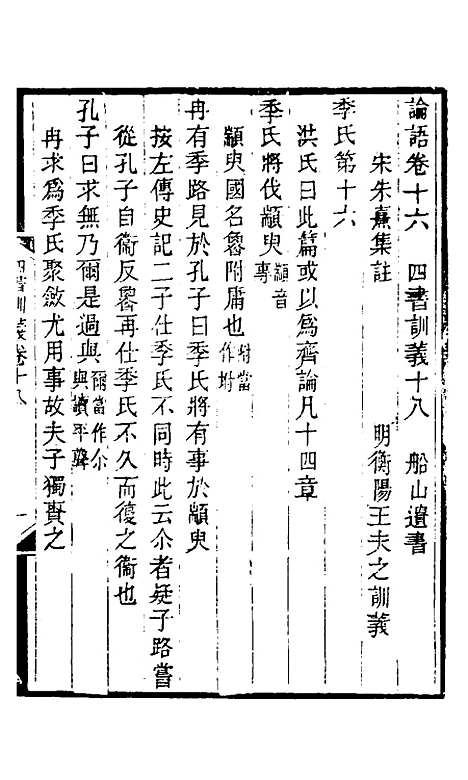 論語卷十六　四書訓義十八　船山遺書
宋朱熹集註　明衡陽王夫之訓義
季氏第十六
洪氏曰此篇或以爲齊論凡十四章
季氏將伐顓臾顓音專
顓臾國名魯附庸也附當作坿
冉有季路見於孔子曰季氏將有事於顓臾
按左傳史記二子仕季氏不同時此云尒者疑子路嘗
從孔子自衞反魯再仕季氏不久而復之衞也
孔子曰求無乃爾是過與爾當作尒與讀平聲
冉求爲季氏聚斂尤用事故夫子獨責之
四書訓義卷十八
一